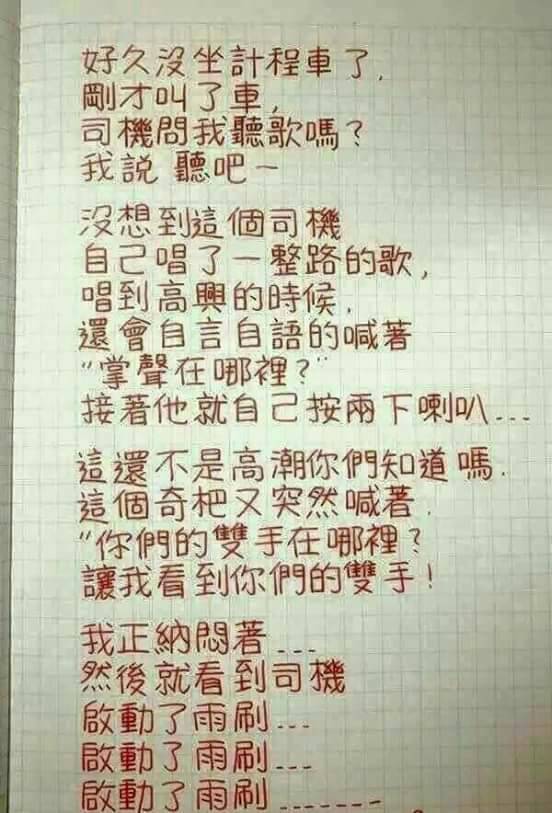 好久沒坐計程車了,
剛才叫了車,
司機問我聽歌嗎?
我說 聽吧－
沒想到這個司機
自己唱了一整路的歌,
唱到高興的時候,
還會自言自語的喊著
"掌聲在哪裡?"
接著他就自己按兩下喇叭...
這還不是高潮你們知道嗎.
這個奇杷又突然喊著.
"你們的雙手在哪裡?
讓我看到你們的雙手!
我正納悶著...
然後就看到司機
啟動了雨刷...
啟動了雨刷...
啟動了雨刷.......